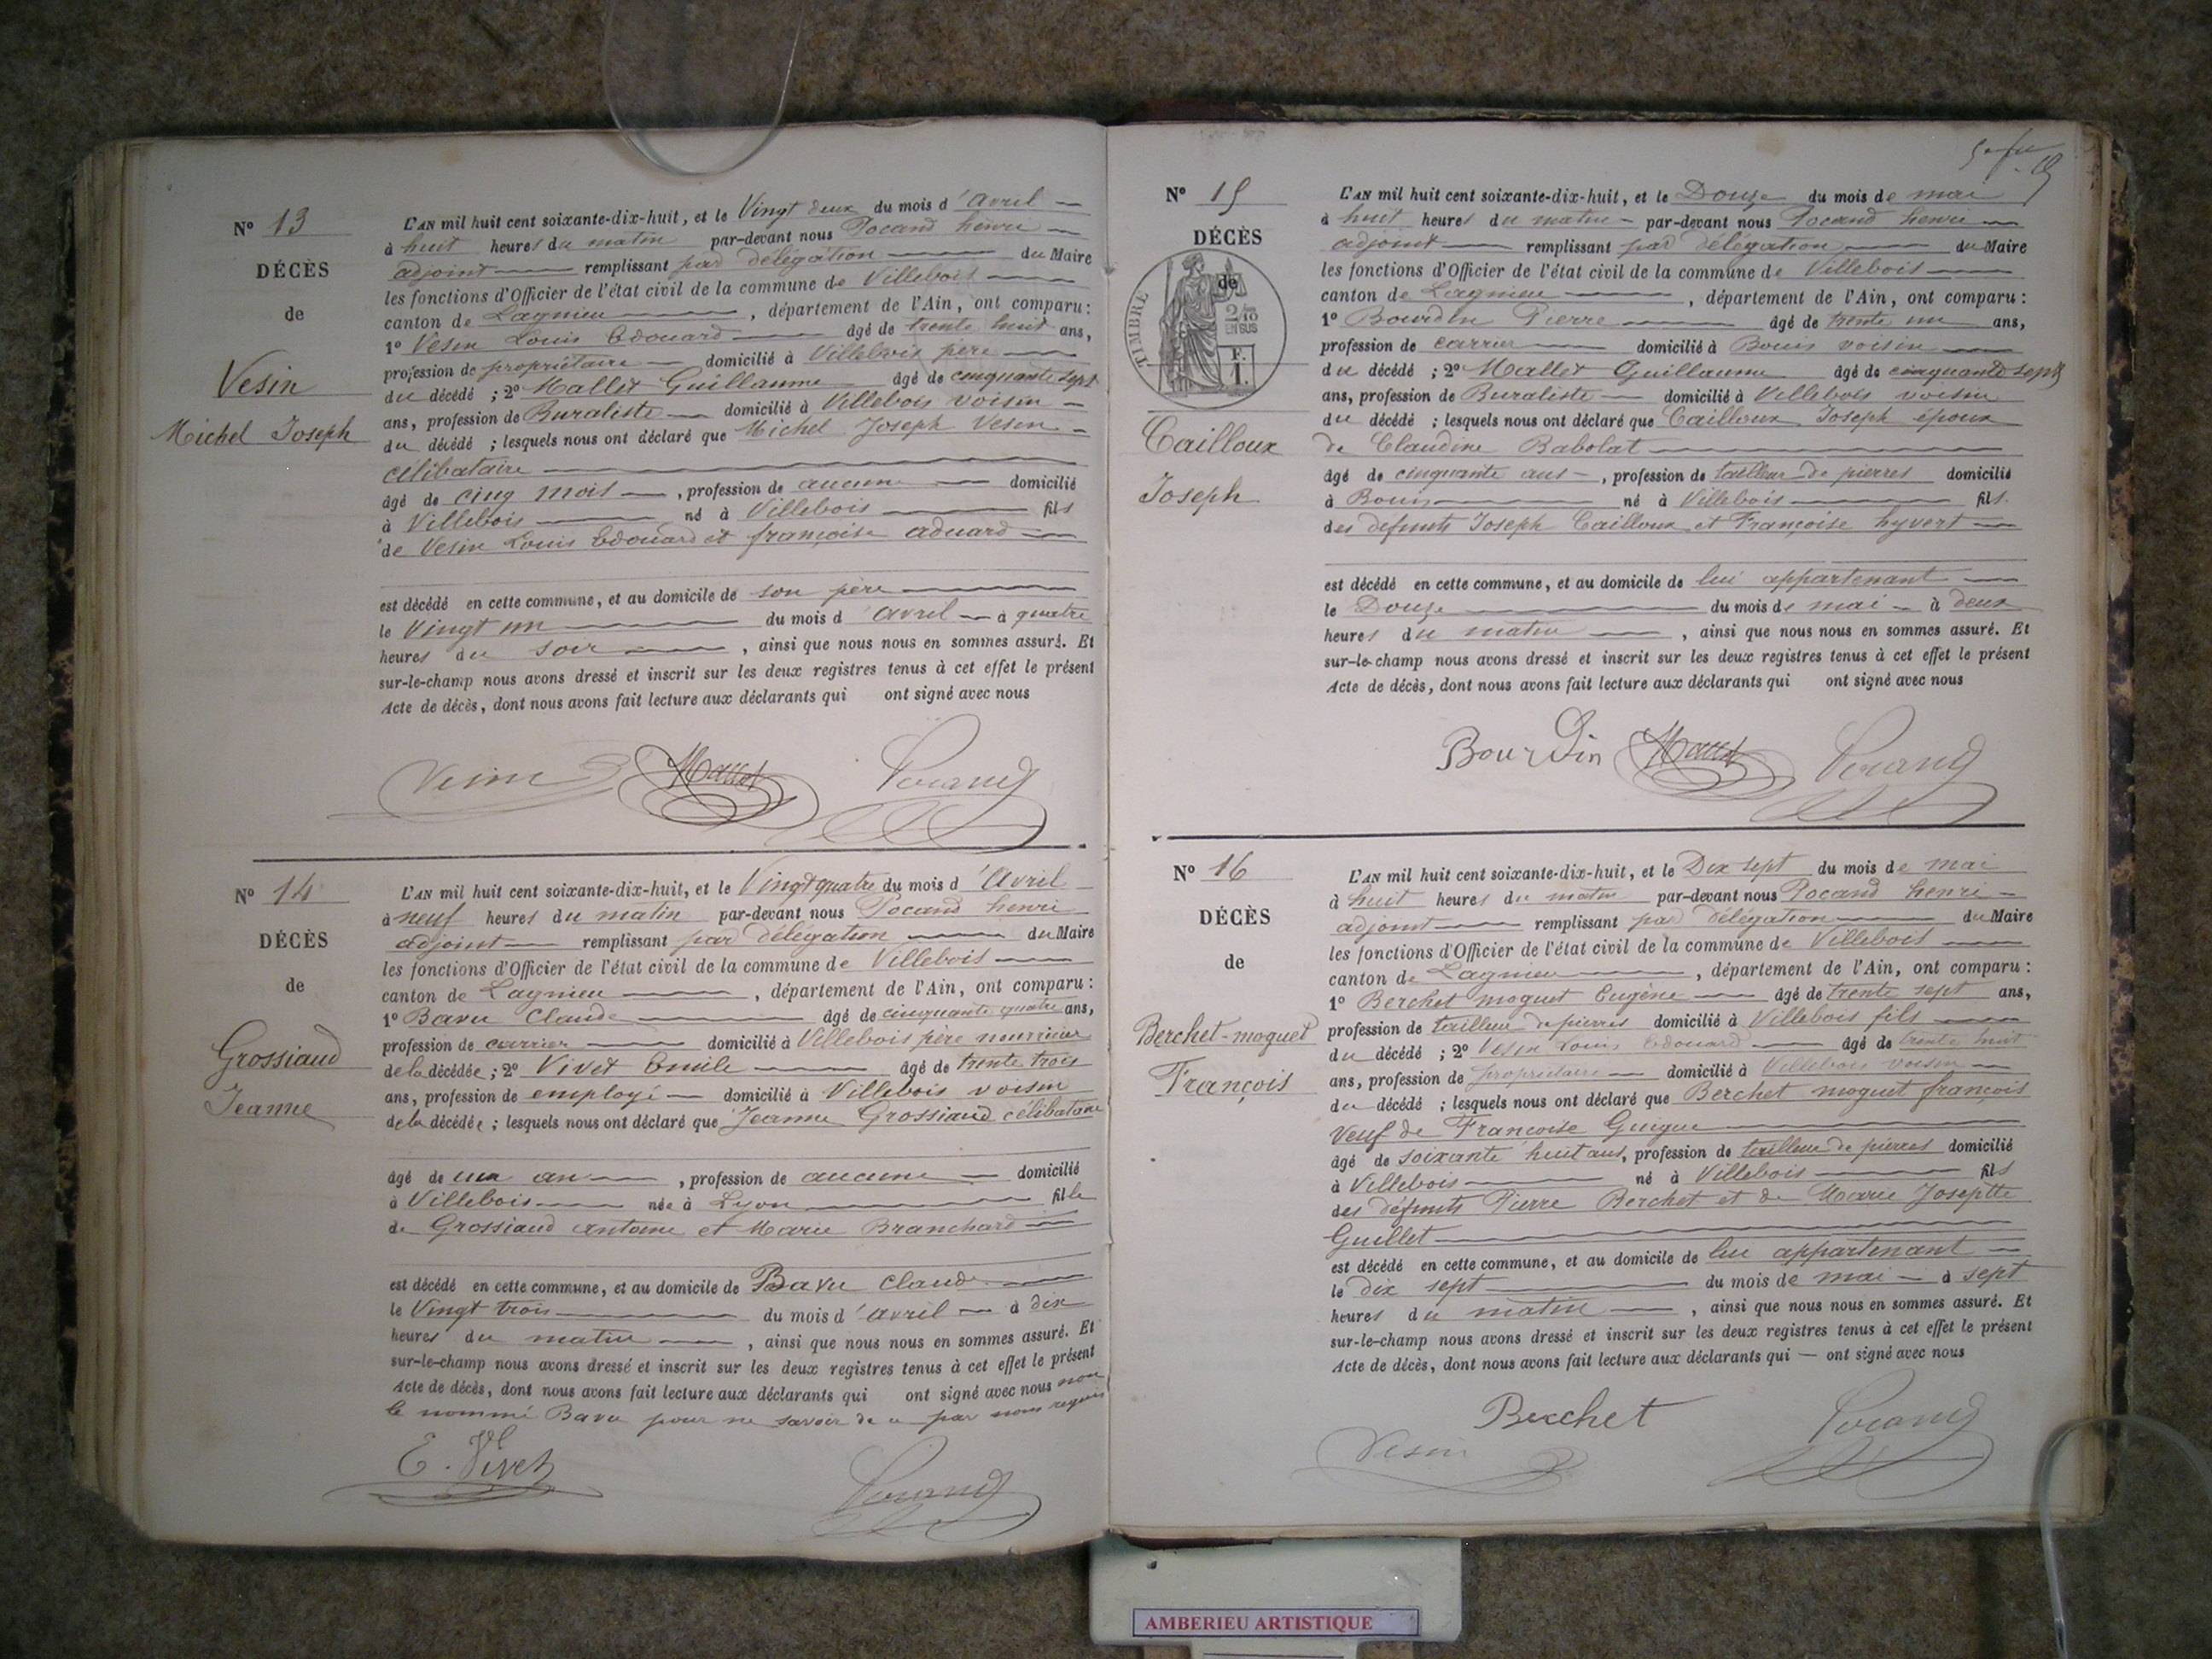 N° 13
DÉCÈS
de
Vesin
Michel Joseph
L'AN mil huit cent soixante-dix-huit, et le Vingt deux du mois d'avril
à huit heures du matin par-devant nous Pocand henri
adjoint remplissant par délégation du Maire
les fonctions d'Officier de l'état civil de la commune de Villebois
canton de Lagnieu, département de l'Ain, ont comparu :
1° Vesin Louis Edouard âgé de trente huit ans,
profession de propriétaire domicilié à Villebois père
du décédé ; 2° Mallet Guillaume âgé de cinquante sept
ans, profession de Buraliste domicilié à Villebois voisin
du décédé ; lesquels nous ont déclaré que Michel Joseph Vesin
célibataire
âgé de cinq mois, profession de aucune domicilié
à Villebois né à Villebois fils
de Vesin Louis Edouard et françoise aduard
est décédé en cette commune, et au domicile de son père
le Vingt un du mois d'avril à quatre
heures du soir, ainsi que nous nous en sommes assuré. Et
sur-le-champ nous avons dressé et inscrit sur les deux registres tenus à cet effet le présent
Acte de décès, dont nous avons fait lecture aux déclarants qui ont signé avec nous
Vesin Mallet Pocand
N° 14
DÉCÈS
de
Grossiaud
Jeanne
L'AN mil huit cent soixante-dix-huit, et le Vingt quatre du mois d'Avril
à neuf heures du matin par-devant nous Pocand henri
adjoint remplissant par délégation du Maire
les fonctions d'Officier de l'état civil de la commune de Villebois
canton de Lagnieu, département de l'Ain, ont comparu :
1° Bavu Claude âgé de cinquante quatre ans,
profession de carrier domicilié à Villebois père nourricier
de la décédée ; 2° Vivet Emile âgé de trente trois
ans, profession de employé domicilié à Villebois voisin
de la décédée ; lesquels nous ont déclaré que Jeanne Grossiaud célibataire
âgé de un an, profession de aucune domicilié
à Villebois née à Lyon fille
de Grossiaud antoine et Marie Branchard
est décédé en cette commune, et au domicile de Bavu Claude
le Vingt trois du mois d'avril à dix
heures du matin, ainsi que nous nous en sommes assuré. Et
sur-le-champ nous avons dressé et inscrit sur les deux registres tenus à cet effet le présent
Acte de décès, dont nous avons fait lecture aux déclarants qui ont signé avec nous non
le nommé Bavu pour ne savoir de ce par nous requis
E. Vivet Pocand
N° 15
DÉCÈS
de
TIMBRE
2/10
EN SUS
Cailloux
Joseph
L'AN mil huit cent soixante-dix-huit, et le Douze du mois de mai
à huit heures du matin par-devant nous Pocand henri
adjoint remplissant par délégation du Maire
les fonctions d'Officier de l'état civil de la commune de Villebois
canton de Lagnieu, département de l'Ain, ont comparu :
1° Bourdin Pierre âgé de trente un ans,
profession de carrier domicilié à Bouis voisin
du décédé ; 2° Mallet Guillaume âgé de cinquante sept
ans, profession de Buraliste domicilié à Villebois voisin
du décédé ; lesquels nous ont déclaré que Cailloux Joseph époux
de Claudine Babolat
âgé de cinquante ans, profession de tailleur de pierres domicilié
à Bouis né à Villebois fils
des defunts Joseph Cailloux et Françoise hyvert
est décédé en cette commune, et au domicile de lui appartenant
le Douze du mois de mai à deux
heures du matin, ainsi que nous nous en sommes assuré. Et
sur-le-champ nous avons dressé et inscrit sur les deux registres tenus à cet effet le présent
Acte de décès, dont nous avons fait lecture aux déclarants qui ont signé avec nous
Bourdin Mallet Pocand
N° 16
DÉCÈS
de
Berchet-moguet
François
L'AN mil huit cent soixante-dix-huit, et le Dix sept du mois de mai
à huit heures du matin par-devant nous Pocand henri
adjoint remplissant par délégation du Maire
les fonctions d'Officier de l'état civil de la commune de Villebois
canton de Lagnieu, département de l'Ain, ont comparu :
1° Berchet moguet Eugène âgé de trente sept ans,
profession de tailleur de pierres domicilié à Villebois fils
du décédé ; 2° Vesin Louis Edouard âgé de trente huit
ans, profession de propriétaire domicilié à Villebois voisin
du décédé ; lesquels nous ont déclaré que Berchet moguet françois
veuf de Francoise Guigue
âgé de soixante huit ans, profession de tailleur de pierres domicilié
à Villebois né à Villebois fils
des défunts Pierre Berchet et de Marie Josephte
Guillet
est décédé en cette commune, et au domicile de lui appartenant
le dix sept du mois de mai à sept
heures du matin, ainsi que nous nous en sommes assuré. Et
sur-le-champ nous avons dressé et inscrit sur les deux registres tenus à cet effet le présent
Acte de décès, dont nous avons fait lecture aux déclarants qui — ont signé avec nous
Berchet
Vesin Pocand
AMBERIEU ARTISTIQUE